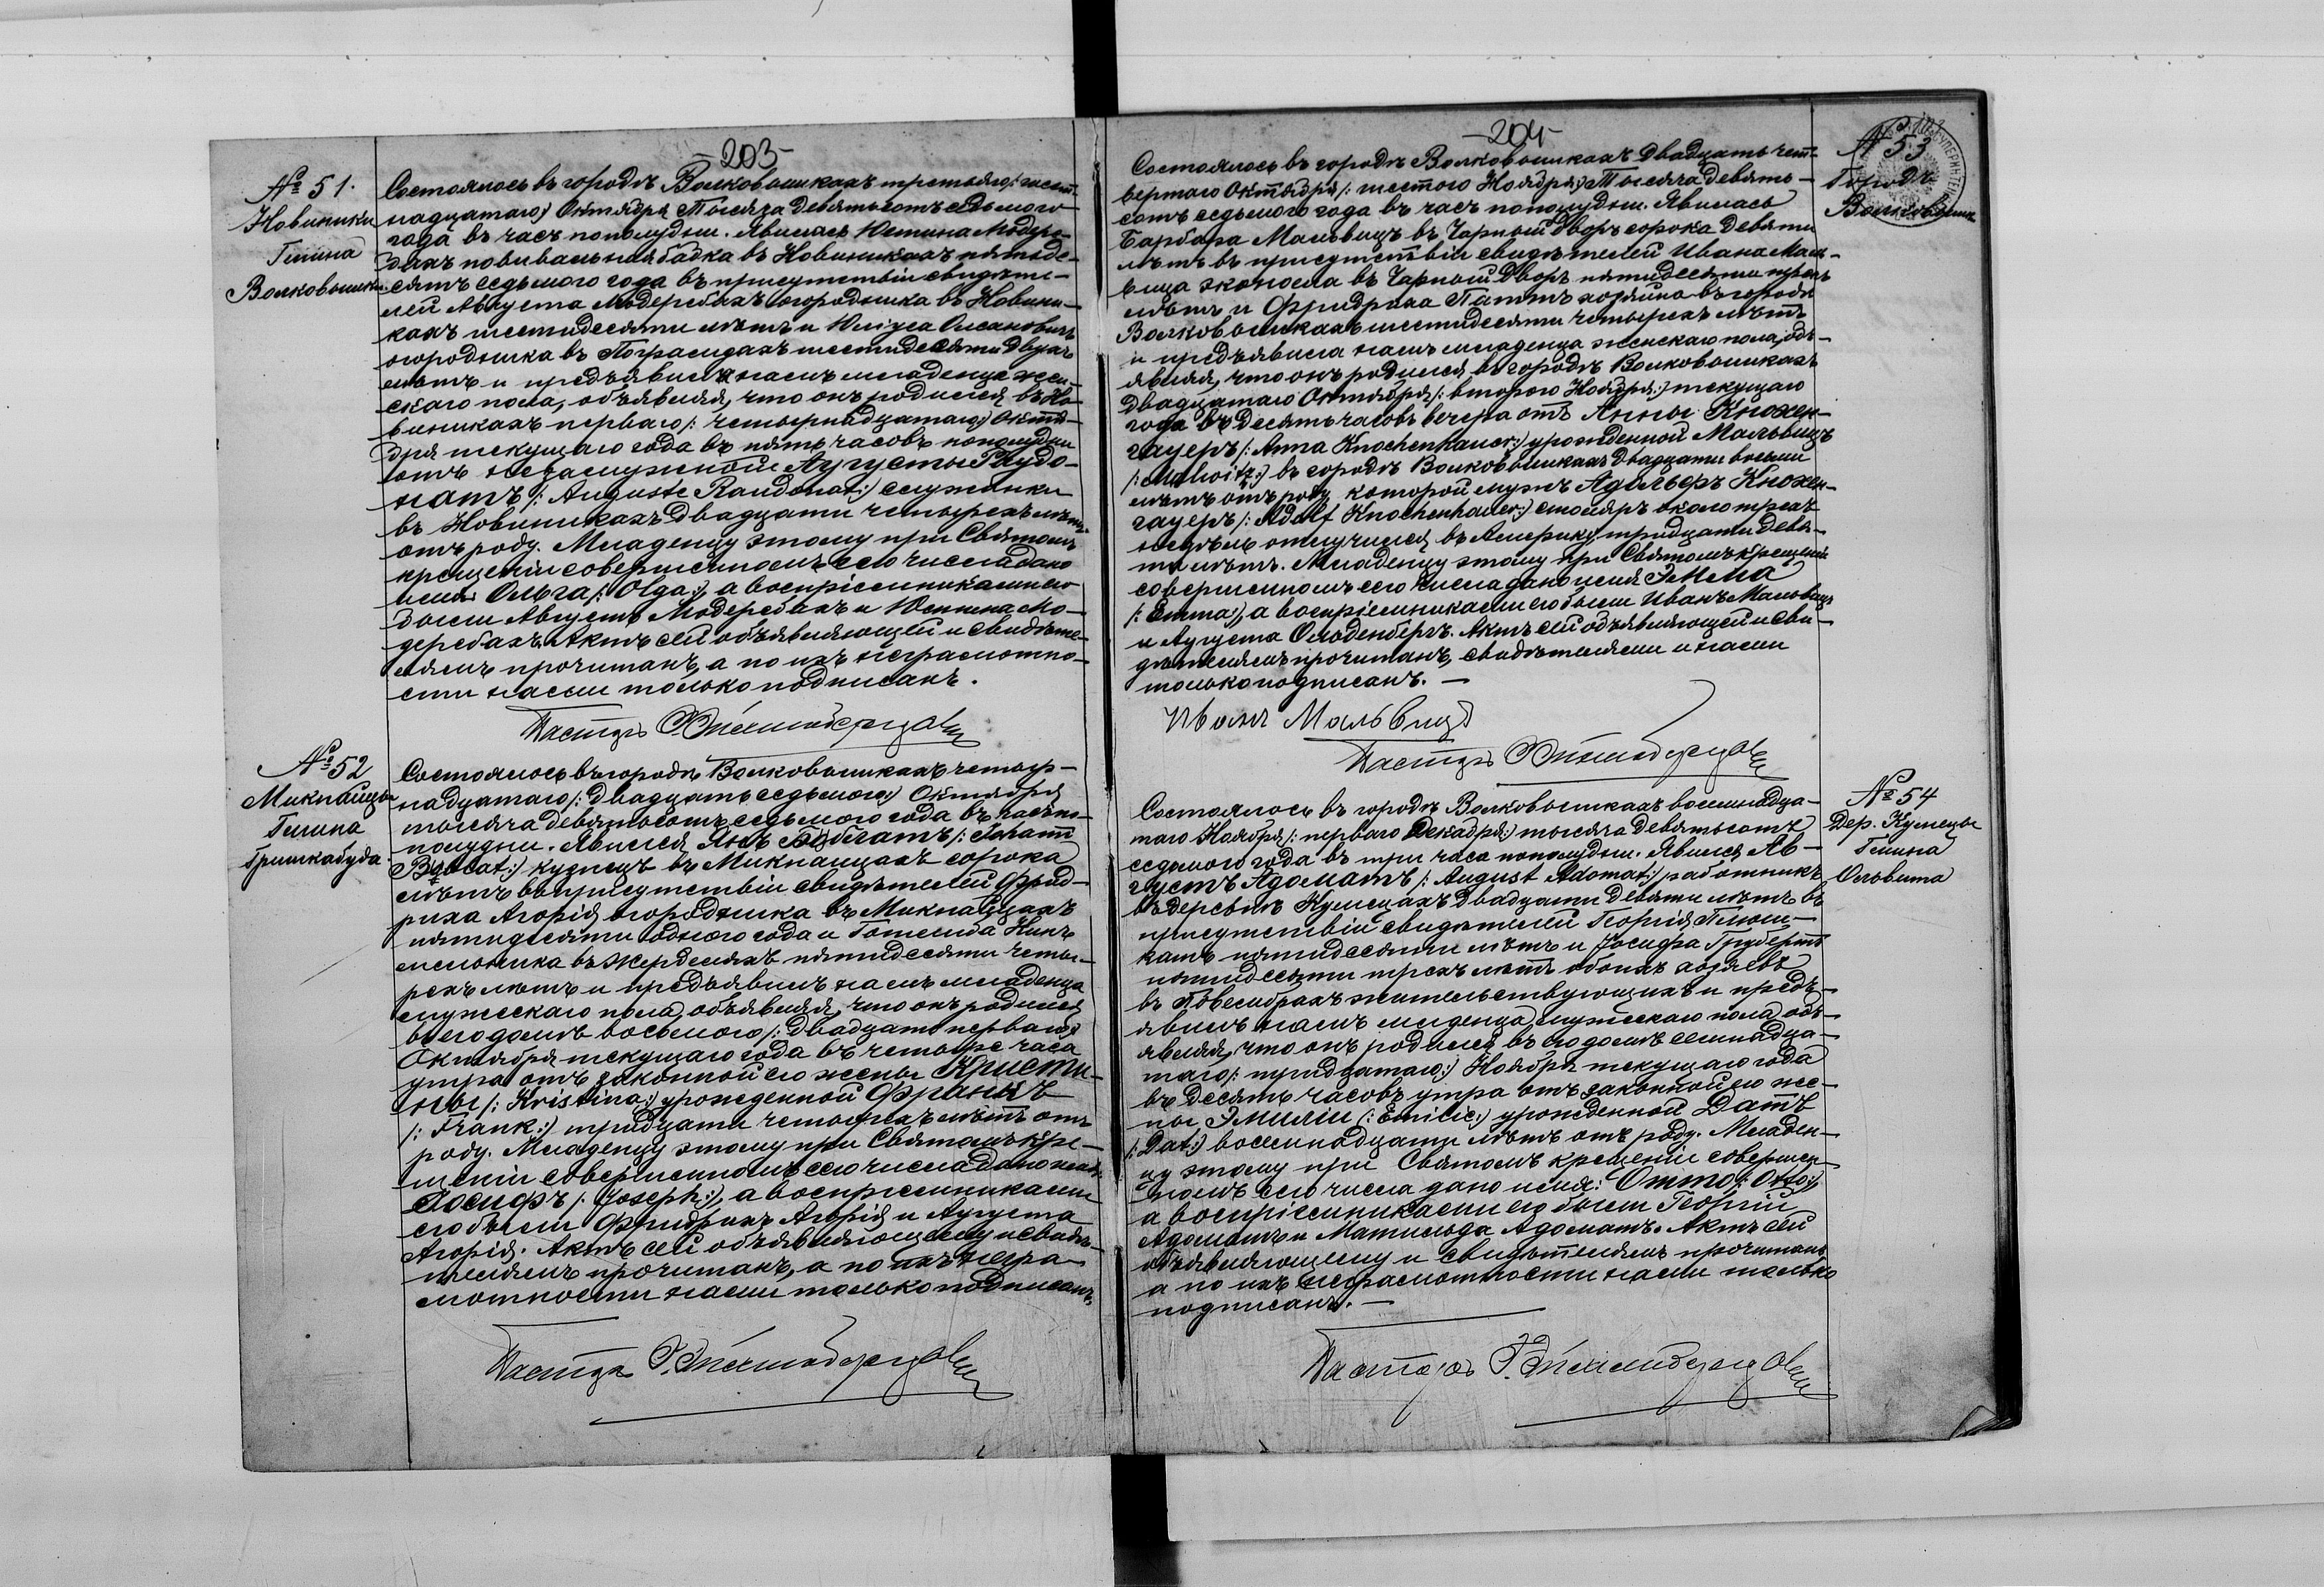 -203-
№ 51.
Новиники
Гмина
Волковышки.
Состоялось въ городѣ Волковышкахъ третьяго /: шест-
надцатаго :/ Октября Тысяча девятьсотъ седьмого
года въ часъ пополудни. Явилась Юстина Модере-
бахъ повивальная бабка въ Новиникахъ пятьде-
сятъ седьмого года въ присутствіи свидѣте-
лей Августа Модеребахъ огородника въ Новини-
кахъ шестидесяти лѣтъ и Юліуса
огородника въ шестидесяти двухъ
лѣтъ и предъявила намъ младенца жен-
скаго пола, объявляя, что онъ родился въ Но-
виникахъ перваго /: четырнадцатаго :/ Октя-
бря текущаго года въ пять часовъ пополудни
отъ незамужной Аугусты Раудо-
натъ /: Auguste Raudonat :/ служанки
въ Новиникахъ двадцати четырехъ лѣтъ
отъ роду. Младенцу этому при Святомъ
крещеніи совершенномъ сего числа дано
имя Ольга /: Olga :/, а воспріемниками его
были Августъ Модеребахъ и Юстина Мо-
деребахъ. Актъ сей объявляющей и свидѣте-
лямъ прочитанъ, а по ихъ неграмотно-
сти нами только подписанъ.
Пасторъ
№ 52
Микпайцы
Гмина
Гришкабуда
Состоялось въ городѣ Волковышкахъ четыр-
надцатаго /: двадцать седьмого :/ Октября
тысяча девятьсотъ седьмого года въ часъ по-
полудни. Явился Янъ /: Johann
кузнецъ въ Микпайцахъ сорока
лѣтъ въ присутствіи свидѣтелей Фрид-
риха Агорія огородника въ Микпайцахъ
пятидесяти одного года и Готлиба Кинъ
мельника въ Жерделяхъ пятидесяти четы-
рехъ лѣтъ и предъявилъ намъ младенца
мужескаго пола, объявляя, что онъ родился
въ его домѣ восьмого /: двадцать перваго :/
Октября текущаго года въ четыре часа
утра отъ законной его жены Кристи-
ны /: Kristina :/ урожденной Франкъ
/: Frank :/ тридцати четырехъ лѣтъ отъ
роду. Младенцу этому при Святомъ кре-
щеніи совершенномъ сего числа дано имя
Іосифъ /: Joseph :/, а воспріемниками
его были Фридрихъ Агорія и Аугуста
Агорія. Актъ сей объявляющему и свидѣ-
телямъ прочитанъ, а по ихъ негра-
мотности нами только подписанъ.
Пасторъ
-204-
№ 53
Городъ
Волковышки
Состоялось въ городѣ Волковышкахъ двадцать чет-
вертаго Октября /: шестого Ноября :/ Тысяча девять-
сотъ седьмого года въ часъ пополудни. Явилась
Барбара Мальвицъ въ Чарный дворъ сорока девяти
лѣтъ въ присутствіи свидѣтелей Ивана Маль-
вица эконома въ Чарный дворъ пятидесяти трехъ
лѣтъ и Фридриха хозяина въ городѣ
Волковышкахъ шестидесяти четырехъ лѣтъ
и предъявила намъ младенца женскаго пола, объ-
являя, что онъ родился въ городѣ Волковышкахъ
двадцатаго Октября /: второго Ноября :/ текущаго
года въ десять часовъ вечера отъ Анны Кнохен-
гауеръ /: Anna Knochenhauer :/ урожденной Мальвицъ
/: Malwitz :/ въ городѣ Волковышкахъ двадцати восьми
лѣтъ отъ роду, которой мужъ Адольфъ Кнохен-
гауеръ /: Adolf Knochenhauer :/ столяръ около трехъ
недѣль отлучился въ Америку, тридцати девя-
ти лѣтъ. Младенцу этому при Святомъ крещеніи
совершенномъ сего числа дано имя Эмма
/: Emma :/, а воспріемниками его были Иванъ Мальвицъ
и Аугуста Ольденбергъ. Актъ сей объявляющей и сви-
дѣтелямъ прочитанъ, свидѣтелями и нами
только подписанъ. -
Иванъ Мальвицъ
Пасторъ
№ 54
Дер. Кумецы
Гмина
Ольвита
Состоялось въ городѣ Волковышкахъ восемнадца-
таго Ноября /: перваго Декабря :/ тысяча девятьсотъ
седьмого года въ три часа пополудни. Явился Ав-
густъ Адоматъ /: August Adomat :/ работникъ
въ деревнѣ Кумецахъ двадцати девяти лѣтъ въ
присутствіи свидѣтелей Георгія
катъ пятидесяти лѣтъ и Іосифа Грубертъ
пятидесяти трехъ лѣтъ обоихъ хозяевъ
въ жительствующихъ и предъ-
явилъ намъ младенца мужескаго пола, объ-
являя, что онъ родился въ его домѣ семнадца-
таго /: тридцатаго :/ Ноября текущаго года
въ десять часовъ утра отъ законной его же-
ны Эмиліи /: Emilie :/ урожденной Датъ
/: Dat :/ восемнадцати лѣтъ отъ роду. Младен-
цу этому при Святомъ крещеніи совершен-
номъ сего числа дано имя: Отто /: Otto :/,
а воспріемниками его были Георгій
Адоматъ и Матильда Адоматъ. Актъ сей
объявляющему и свидѣтелямъ прочитанъ,
а по ихъ неграмотности нами только
подписанъ. -
Пасторъ